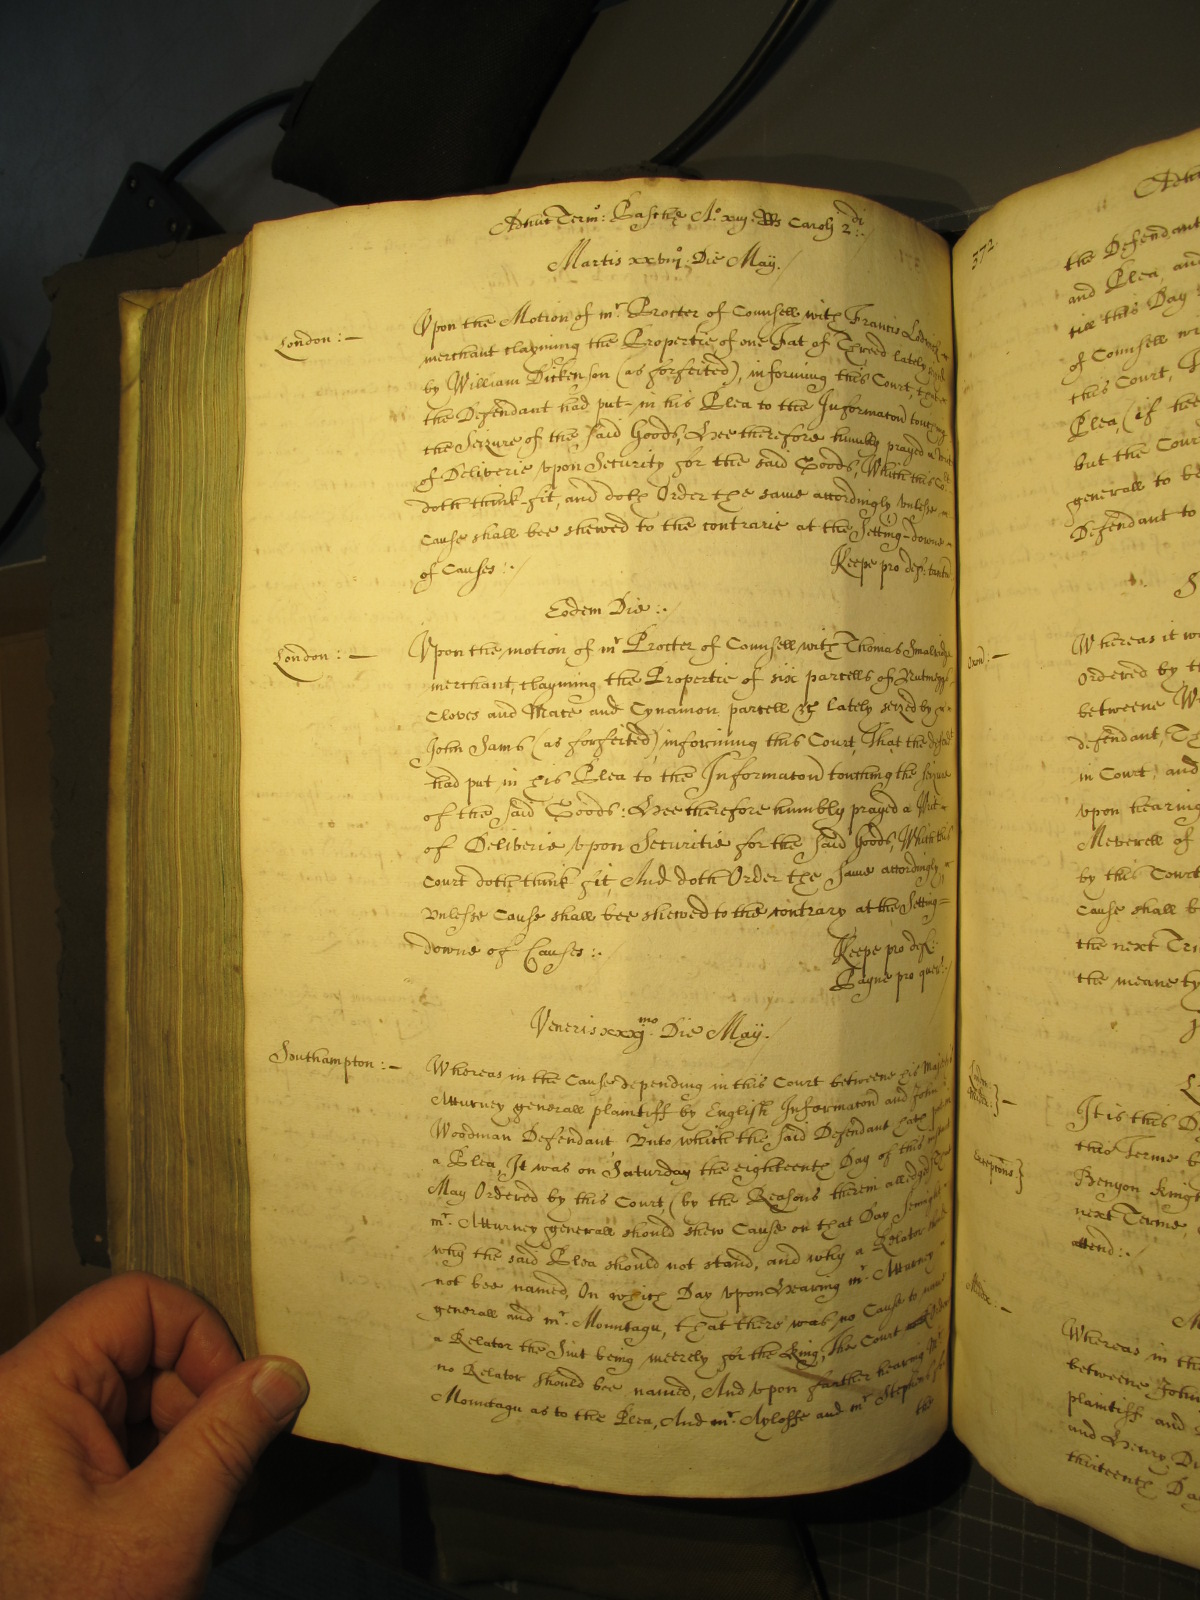 Adhuc Term: Pasche Ao xiij RRs Caroli 2di:
Martis xxviijo Die May.
London:— Upon the Motion of mr. Procter of Counsell with Francis
merchant clayming the Propertie of one Fat of Threed lately
by William Dickenson (as forfeited), informing this Court, that
the Defendant had put in his Plea to the Informacon touching
the Seizure of the said Goods, Hee therefore humbly prayed a
of Deliverie upon Security for the said Goods, Which this
doth think fit, and doth Order the same accordingly unlesse
Cause shall bee shewed to the contrarie at the Setting-downe
of Causes:. Keepe pro def:
Eodem Die:.
London:— Upon the motion of mr Procter of Counsell with Thomas
merchant, clayming the Propertie of six parcells of Nutmeggs,
Cloves and Mace and Cynamon parcell &c lately seized by
John Sams (as forfeited) informing this Court, That the
had put in his Plea to the Informacon touching the seizure
of the said Goods: Hee therefore humbly prayed a Writ
of Deliverie upon Securitie for the said Goods, Which this
Court doth think fit, And doth Order the same accordingly
Unlesse Cause shall bee shewed to the contrary at the Setting=
downe of Causes:. Keepe pro def:
Payne pro quer:
Veneris xxximo Die May.
Southampton:— Whereas in the Cause depending in this Court betweene his
Atturney generall plaintiff by English Informacon and John
Woodman Defendant Unto which the said Defendant hath
a Plea, It was on Saturday the eighteenth Day of this
May Ordered by this Court (by the Reasons therein alledged)
mr. Atturney generall should shew Cause on that Day
why the said Plea should not stand, and why a Relator
not bee named, On which Day upon Hearing mr. Atturney
generall and mr. Mountagu, that there was no Cause to name
a Relator the Suit being meerely for the King, The Court
no Relator should bee named, And upon farther hearing Mr
Mountagu as to the Plea, And mr. Ayloffe and mr Stephens for
the
Adhuc
372.
the Defendant
and Plea, and
till this Day
of Counsell
this Court,
Plea, (if the
but the Court
generall to be
Defendant to
Oxon:— Whereas it
Ordered by
betweene
defendant,
in Court, and
upon hearing
Meverell of
by this Court
Cause shall
the next
the meane
It is this
Terme
Exceptions} Benyon
next Terme,
attend:.
Middx:— Whereas in
betweene John
plaintiff and
and Henry
thirteenth Day